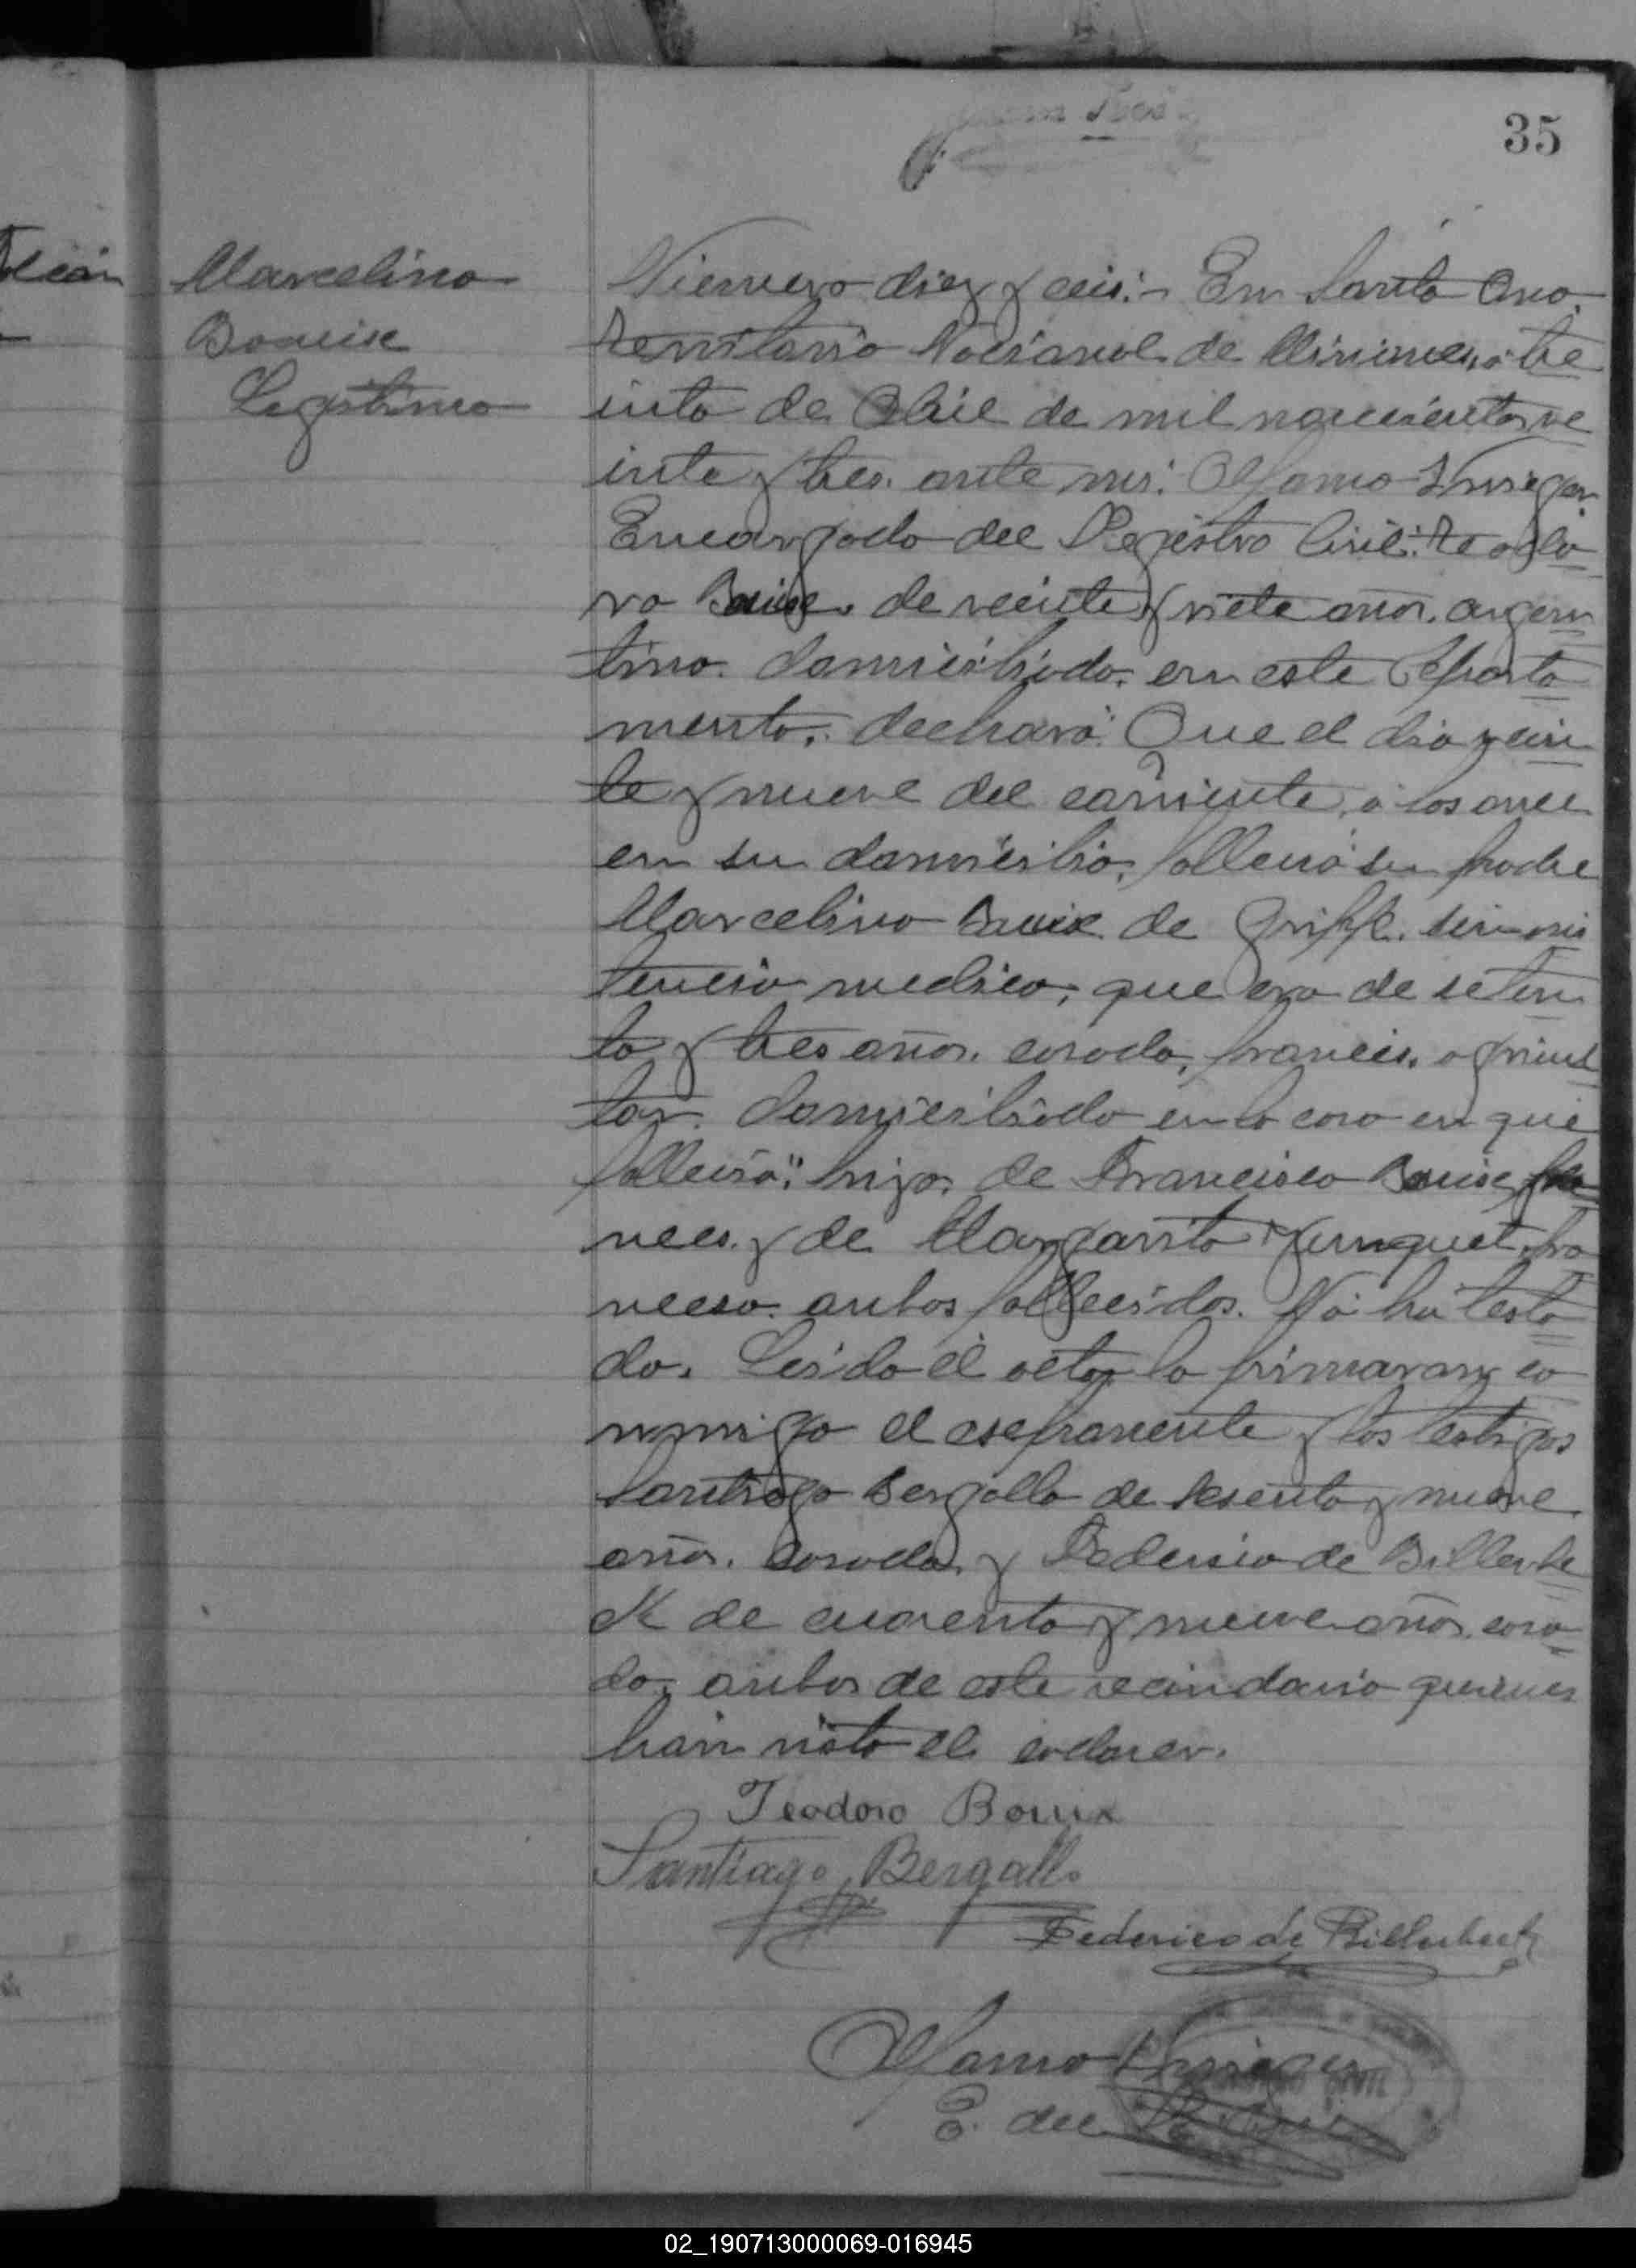 35
Marcelino
Bouix
Legitimo
Número diez y seis: En Santa Ana,
Territorio Nacional de Misiones, a tre
inta de Abril de mil novecientos ve
inte y tres. ante mi:
Encargado del Registro Civil: Teodo
ro Bouix, de veinte y siete años, argen
tino, domiciliado, en este Departa
mento, declaró: Que el dia vein
te y nueve del corriente, a las once
en su domicilio, falleció su padre
Marcelino Bouix de Grippe, sin asis
tencia medica, que era de seten
ta y tres años, casado, frances, agricul
tor, domiciliado en la casa en que
falleció: hijo, de Francisco Bouix, fra
nces, y de Margarita Yunquet, fra
ncesa, ambos fallecidos. No ha testa
do. Leido el acta, la firmaran, co
nmigo el exponente y los testigos
Santiago Bergallo de sesenta y nueve
años, casado, y Federico de Billerbe
ck de cuarenta y nueve años, casa
do, ambos de este vecindario quienes
han visto el cadaver.
Teodoro Bouix
Santiago Bergallo
Federico de Billerbeck
E. del
02_190713000069-016945